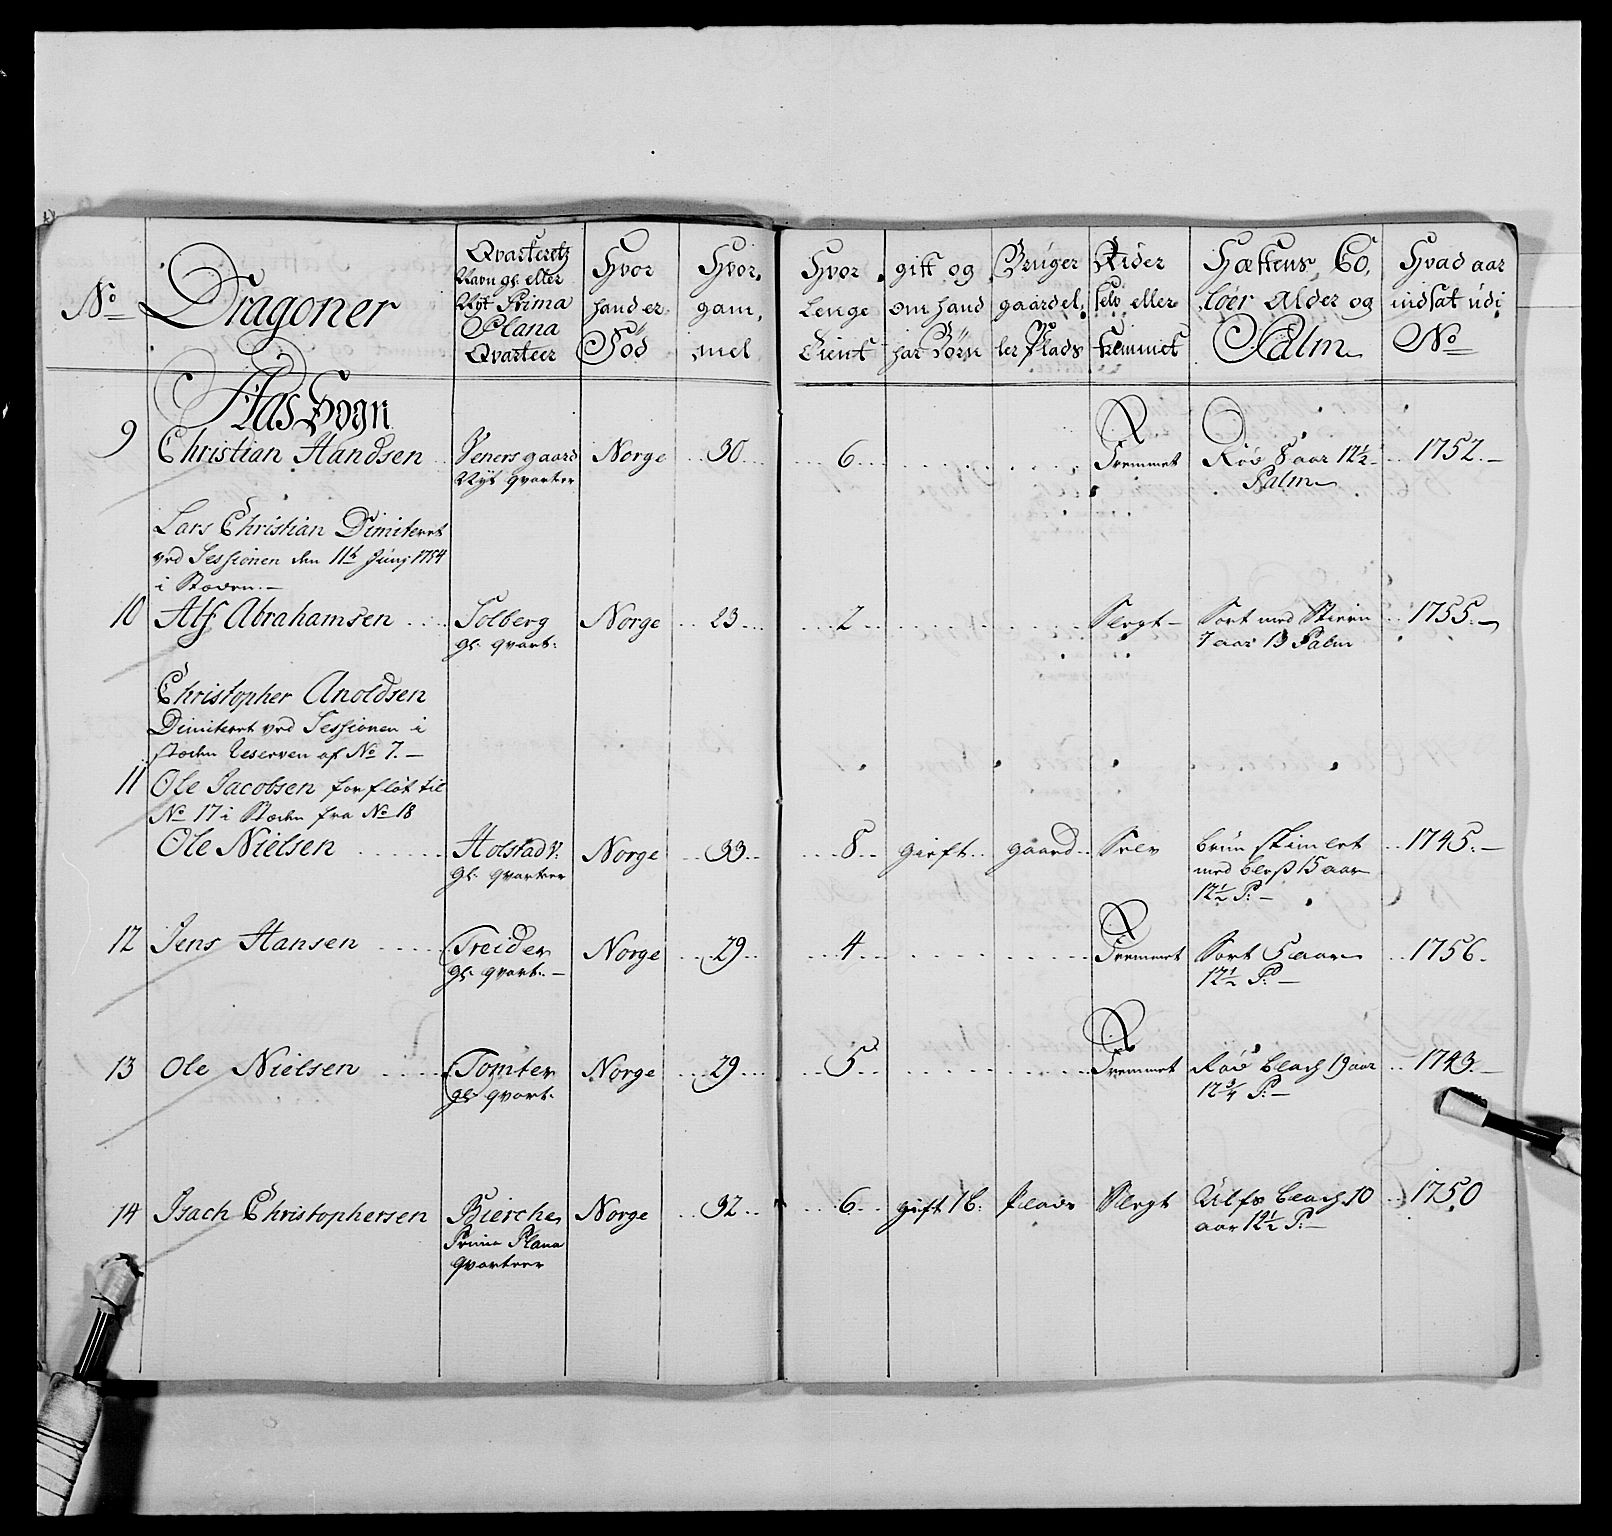 No
Dragoner
Qvarteretz
Navn gl. eller
Nyt Prima
Plana
Qvarteer
Hvor
hand er
Fød
Hvor
gam,
mel
Hvor
Lenge
Tient
gift og
om hand
har Børn
Bruger
gaard el,
ler Plads
Rider
selv eller
fremmet
Hæstens Co,
løer Alder og
Palm
Hvad aar
indsat udi
No
Aas Sogn
9 Christian Handsen Venersgaard Norge 30 6 R Rød 8 aar 12½ 1752.
Nyt qvarteer Fremmet Palm
Lars Christian Dimiteret
ved Sessionen den 11t Junj 1754
i Stæden.
10 Alf Abrahamsen Solberg Norge 23 2 Slegt Sort med Stiern 1755.
gl. qvart: 7 aar 13 Palm
Christopher Anoldsen
Dimiteret ved Sessionen i
stæden Reserven af No 7.
11 Ole Jacobsen forfløt til
No 17 i Stæden fra No 18
Ole Nielsen Holstad v: Norge 33 8 gieft gaard Selv brun skimlet 1745.
gl. qvarteer med bless 15 aar
12½ P:
12 Jens Hansen Treider Norge 29 4 R Sort 5 aar 1756.
gl. qvart. Fremmet 12½ P:
13 Ole Nielsen Tomter Norge 29 5 R Rød blach 19 aar 1743.
gl. qvart. Fremmet 12¾ P:
14 Isach Christophersen Bierche Norge 32 6 gift 1 b. Plads Slegt Ulfs blach 10 1750
Prima Plana aar 12½ P:
qvarteer